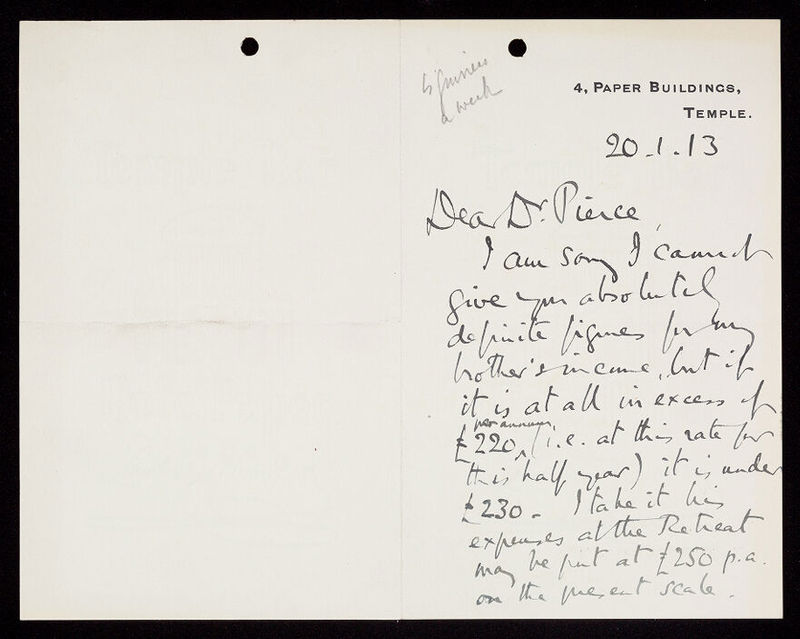 5 guineas
a week
4, PAPER BUILDINGS,
TEMPLE.
20.1.13
Dear Dr. Pierce,
I am sorry I cannot
give you absolutely
definite figures for my
brother's income, but if
it is at all in excess of
per annum
£220, (i.e. at this rate for
this half year) it is under
£230. I take it his
expenses at the Retreat
may be put at £250 p.a.
on the present scale.